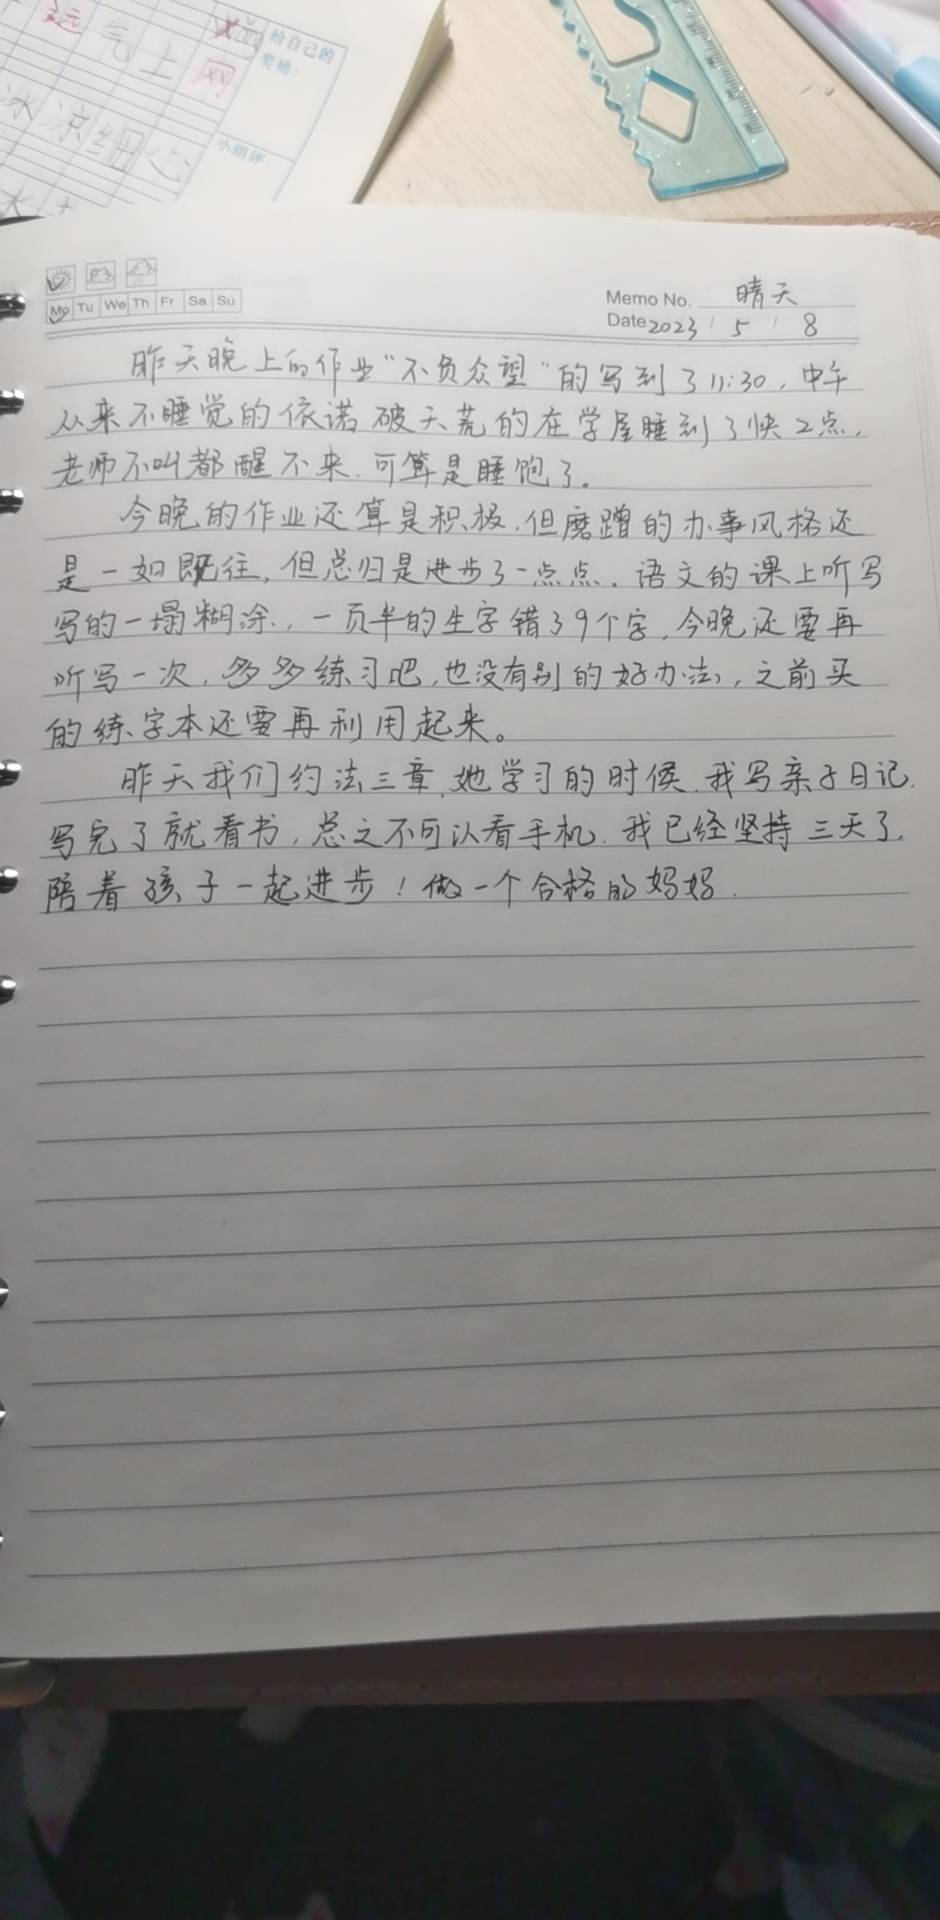 给自己的
奖励：
气上
网
冰凉细心
小组评：
Mo Tu We Th Fr Sa Su
Memo No. 晴天
Date 2023 / 5 / 8
昨天晚上的作业“不负众望”的写到了11:30，中午
从来不睡觉的依诺破天荒的在学屋睡到了快2点，
老师不叫都醒不来，可算是睡饱了。
今晚的作业还算是积极，但磨蹭的办事风格还
是一如既往，但总归是进步了一点点。语文的课上听写
写的一塌糊涂，一页半的生字错了9个字，今晚还要再
听写一次，多多练习吧，也没有别的好办法，之前买
的练字本还要再利用起来。
昨天我们约法三章，她学习的时候，我写亲子日记，
写完了就看书，总之不可以看手机，我已经坚持三天了，
陪着孩子一起进步！做一个合格的妈妈．